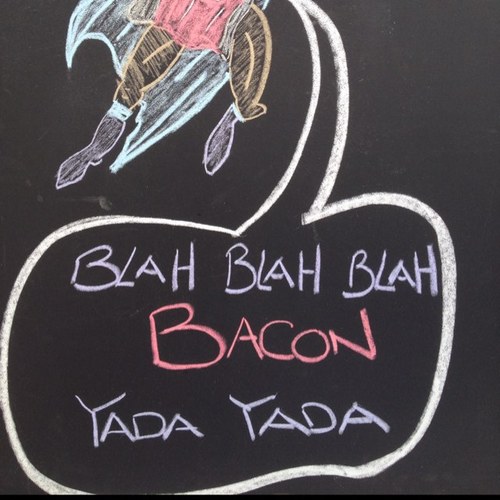 BLAH BLAH BLAH
BACON
YADA YADA